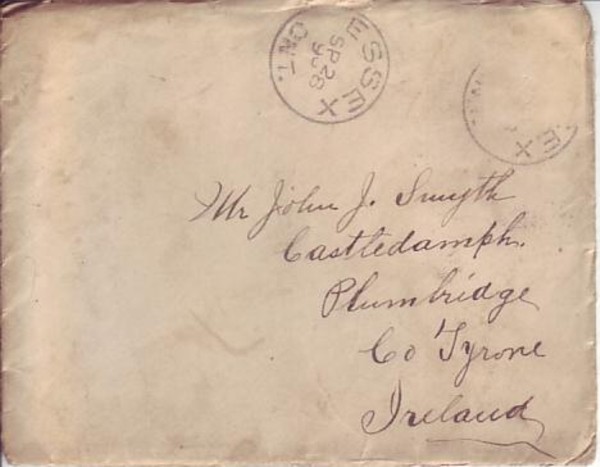 ESSEX
SP 26
ONT.
EX
Mr John J. Smyth
Castledamph.
Plumbridge
Co Tyrone
Ireland